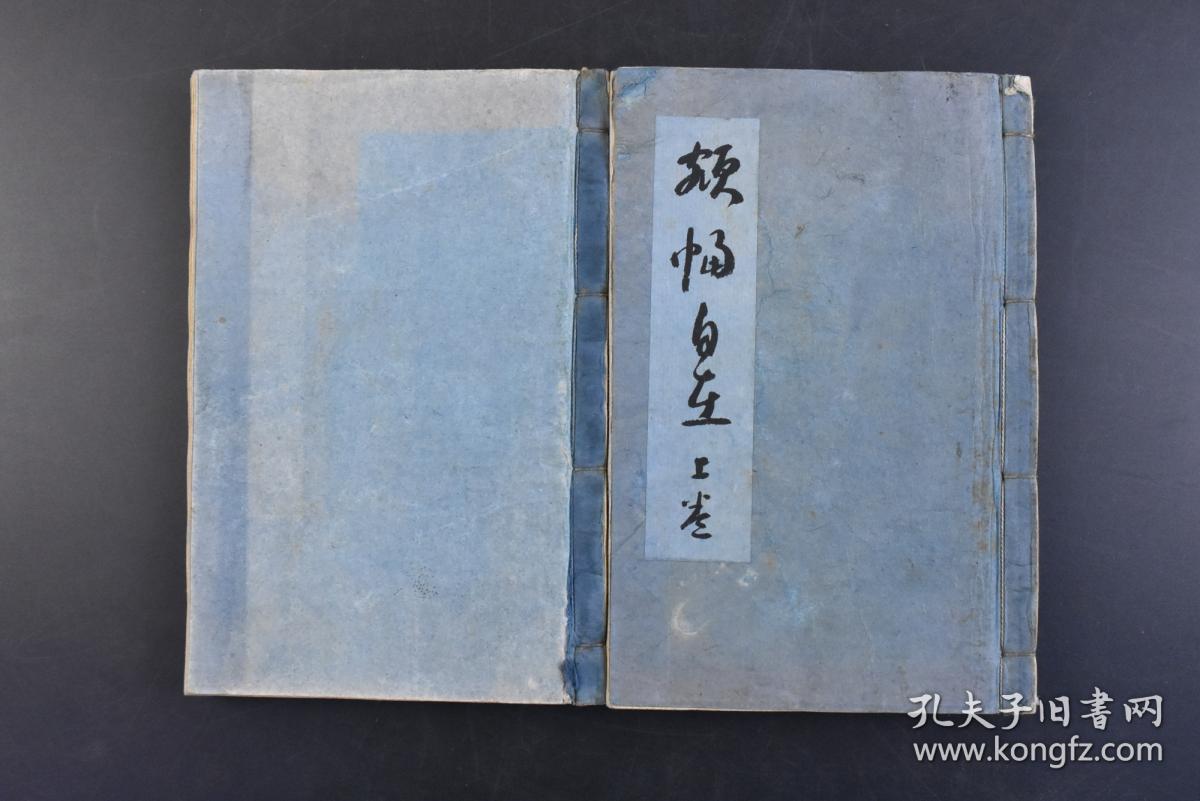 額幅自在 上卷
孔夫子旧書网
www.kongfz.com